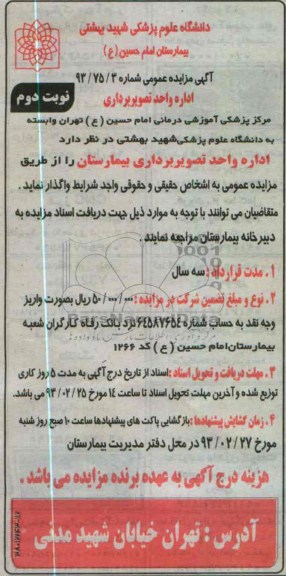 دانشگاه علوم پزشکی شهید بهشتی
بیمارستان امام حسین (ع)
آگهی مزایده عمومی شماره ۹۳/۷۵/۳
اداره واحد تصویربرداری
نوبت دوم
مرکز پزشکی آموزشی درمانی امام حسین (ع) تهران وابسته
به دانشگاه علوم پزشکی شهید بهشتی در نظر دارد
اداره واحد تصویربرداری بیمارستان را از طریق
مزایده عمومی به اشخاص حقیقی و حقوقی واجد شرایط واگذار نماید.
متقاضیان می توانند با توجه به موارد ذیل جهت دریافت اسناد مزایده به
دبیرخانه بیمارستان مراجعه نمایند.
۱. مدت قرارداد: سه سال
۲. نوع و مبلغ تضمین شرکت در مزایده: ۵۰/۰۰۰/۰۰۰ ریال بصورت واریز
وجه نقد به حساب شماره ۶۴۵۸۷۶۵۴ نزد بانک رفاه کارگران شعبه
بیمارستان امام حسین (ع) کد ۱۲۶۶
۳. مهلت دریافت و تحویل اسناد: اسناد از تاریخ درج آگهی به مدت ۵ روز کاری
توزیع شده و آخرین مهلت تحویل اسناد تا ساعت ۱۴ مورخ ۹۳/۰۲/۲۵ می باشد.
۴. زمان گشایش پیشنهادها: بازگشایی پاکت های پیشنهادها ساعت ۱۰ صبح روز شنبه
مورخ ۹۳/۰۲/۲۷ در محل دفتر مدیریت بیمارستان
هزینه درج آگهی به عهده برنده مزایده می باشد.
آدرس: تهران خیابان شهید مدنی